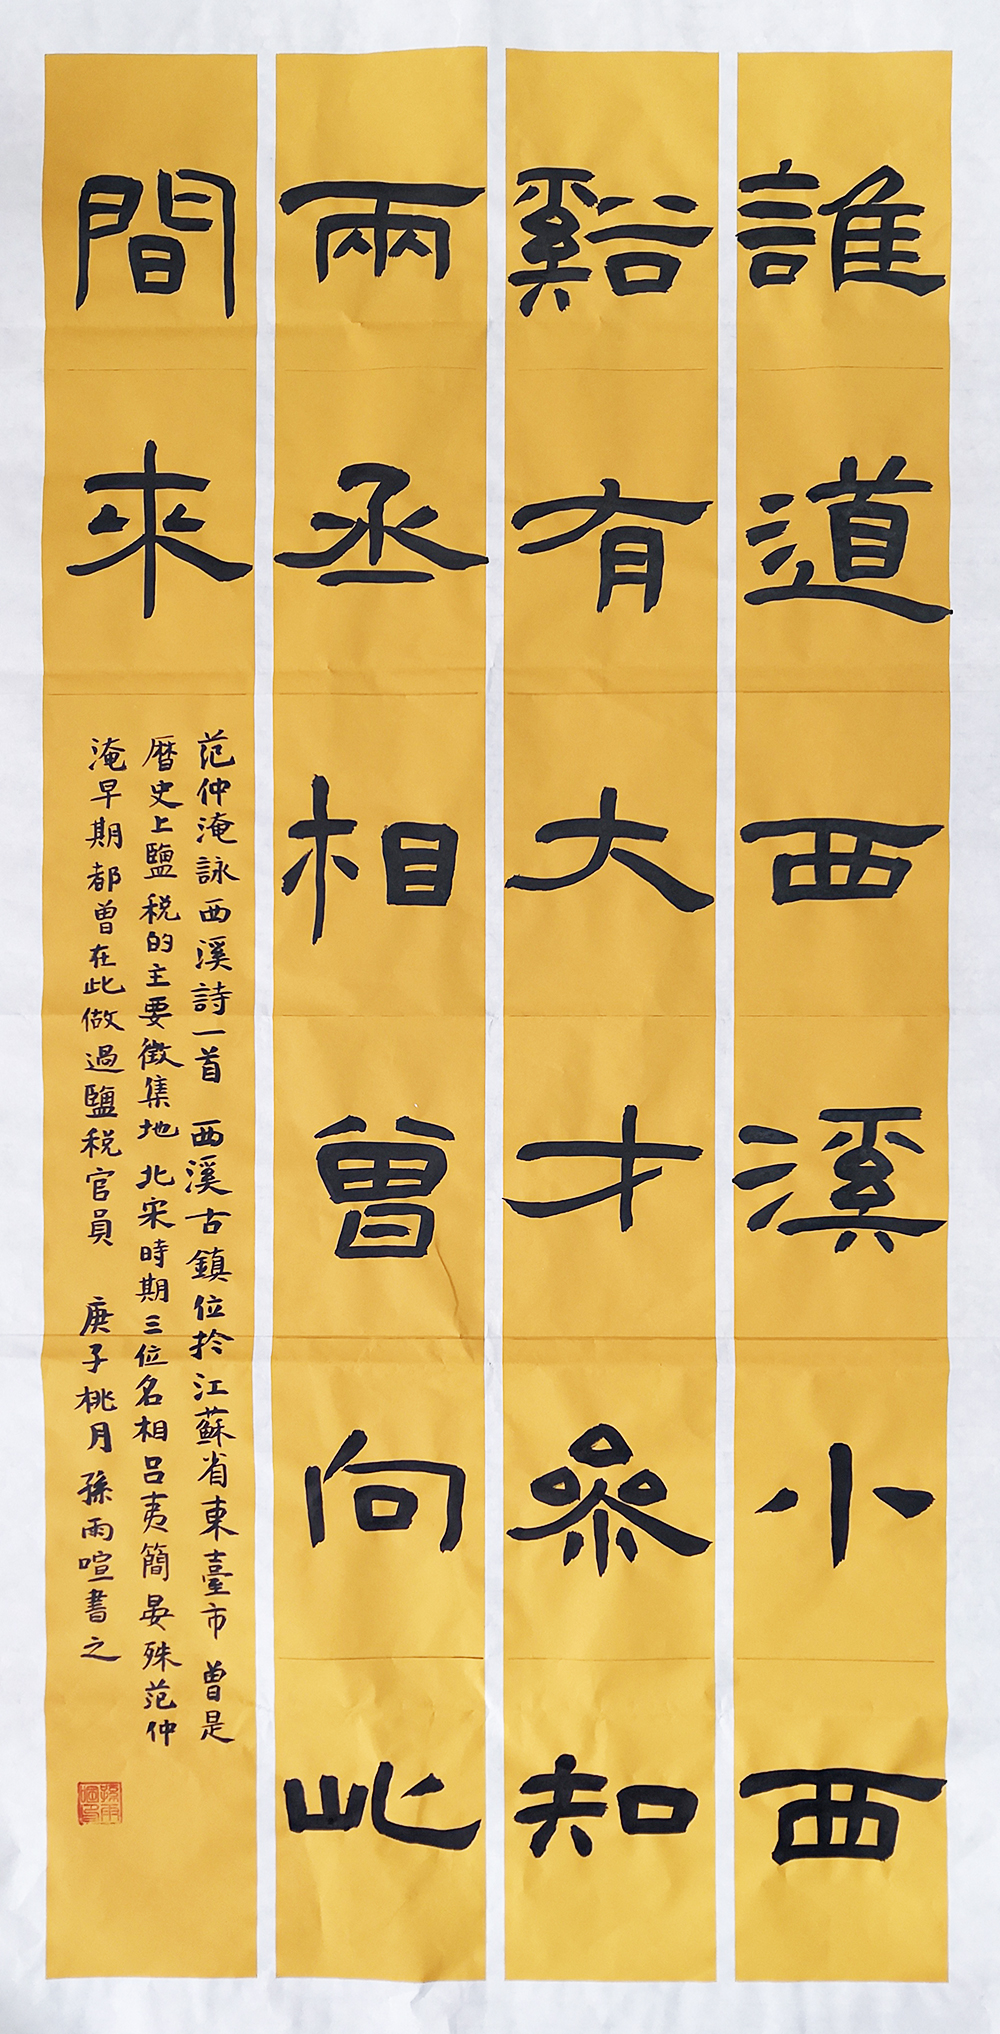 誰道西溪小西
谿有大才參知
兩丞相曾向此
間來
范仲淹詠西溪詩一首 西溪古鎮位於江蘇省東臺市 曾是
曆史上鹽税的主要徵集地 北宋時期三位名相吕夷簡晏殊范仲
淹早期都曾在此做過鹽税官員 庚子桃月孫雨喧書之